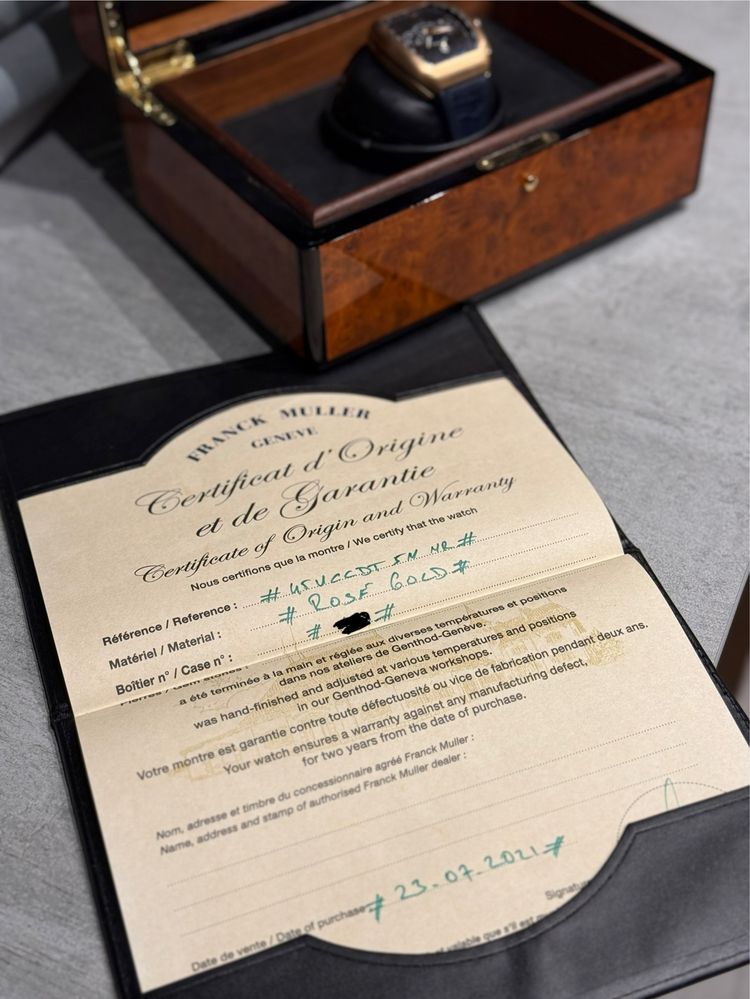 FRANCK MULLER
GENEVE
Certificat d'Origine
et de Garantie
Certificate of Origin and Warranty
Nous certifions que la montre / We certify that the watch
Référence / Reference : # 45VCCDT 5N NR #
Matériel / Material : # ROSE GOLD #
Boîtier n° / Case n° : # #
a été terminée à la main et réglée aux diverses températures et positions
dans nos ateliers de Genthod-Genève.
was hand-finished and adjusted at various temperatures and positions
in our Genthod-Geneva workshops.
Votre montre est garantie contre toute défectuosité ou vice de fabrication pendant deux ans.
Your watch ensures a warranty against any manufacturing defect,
for two years from the date of purchase.
Nom, adresse et timbre du concessionnaire agréé Franck Muller :
Name, address and stamp of authorised Franck Muller dealer :
Date de vente / Date of purchase # 23-07-2021 #